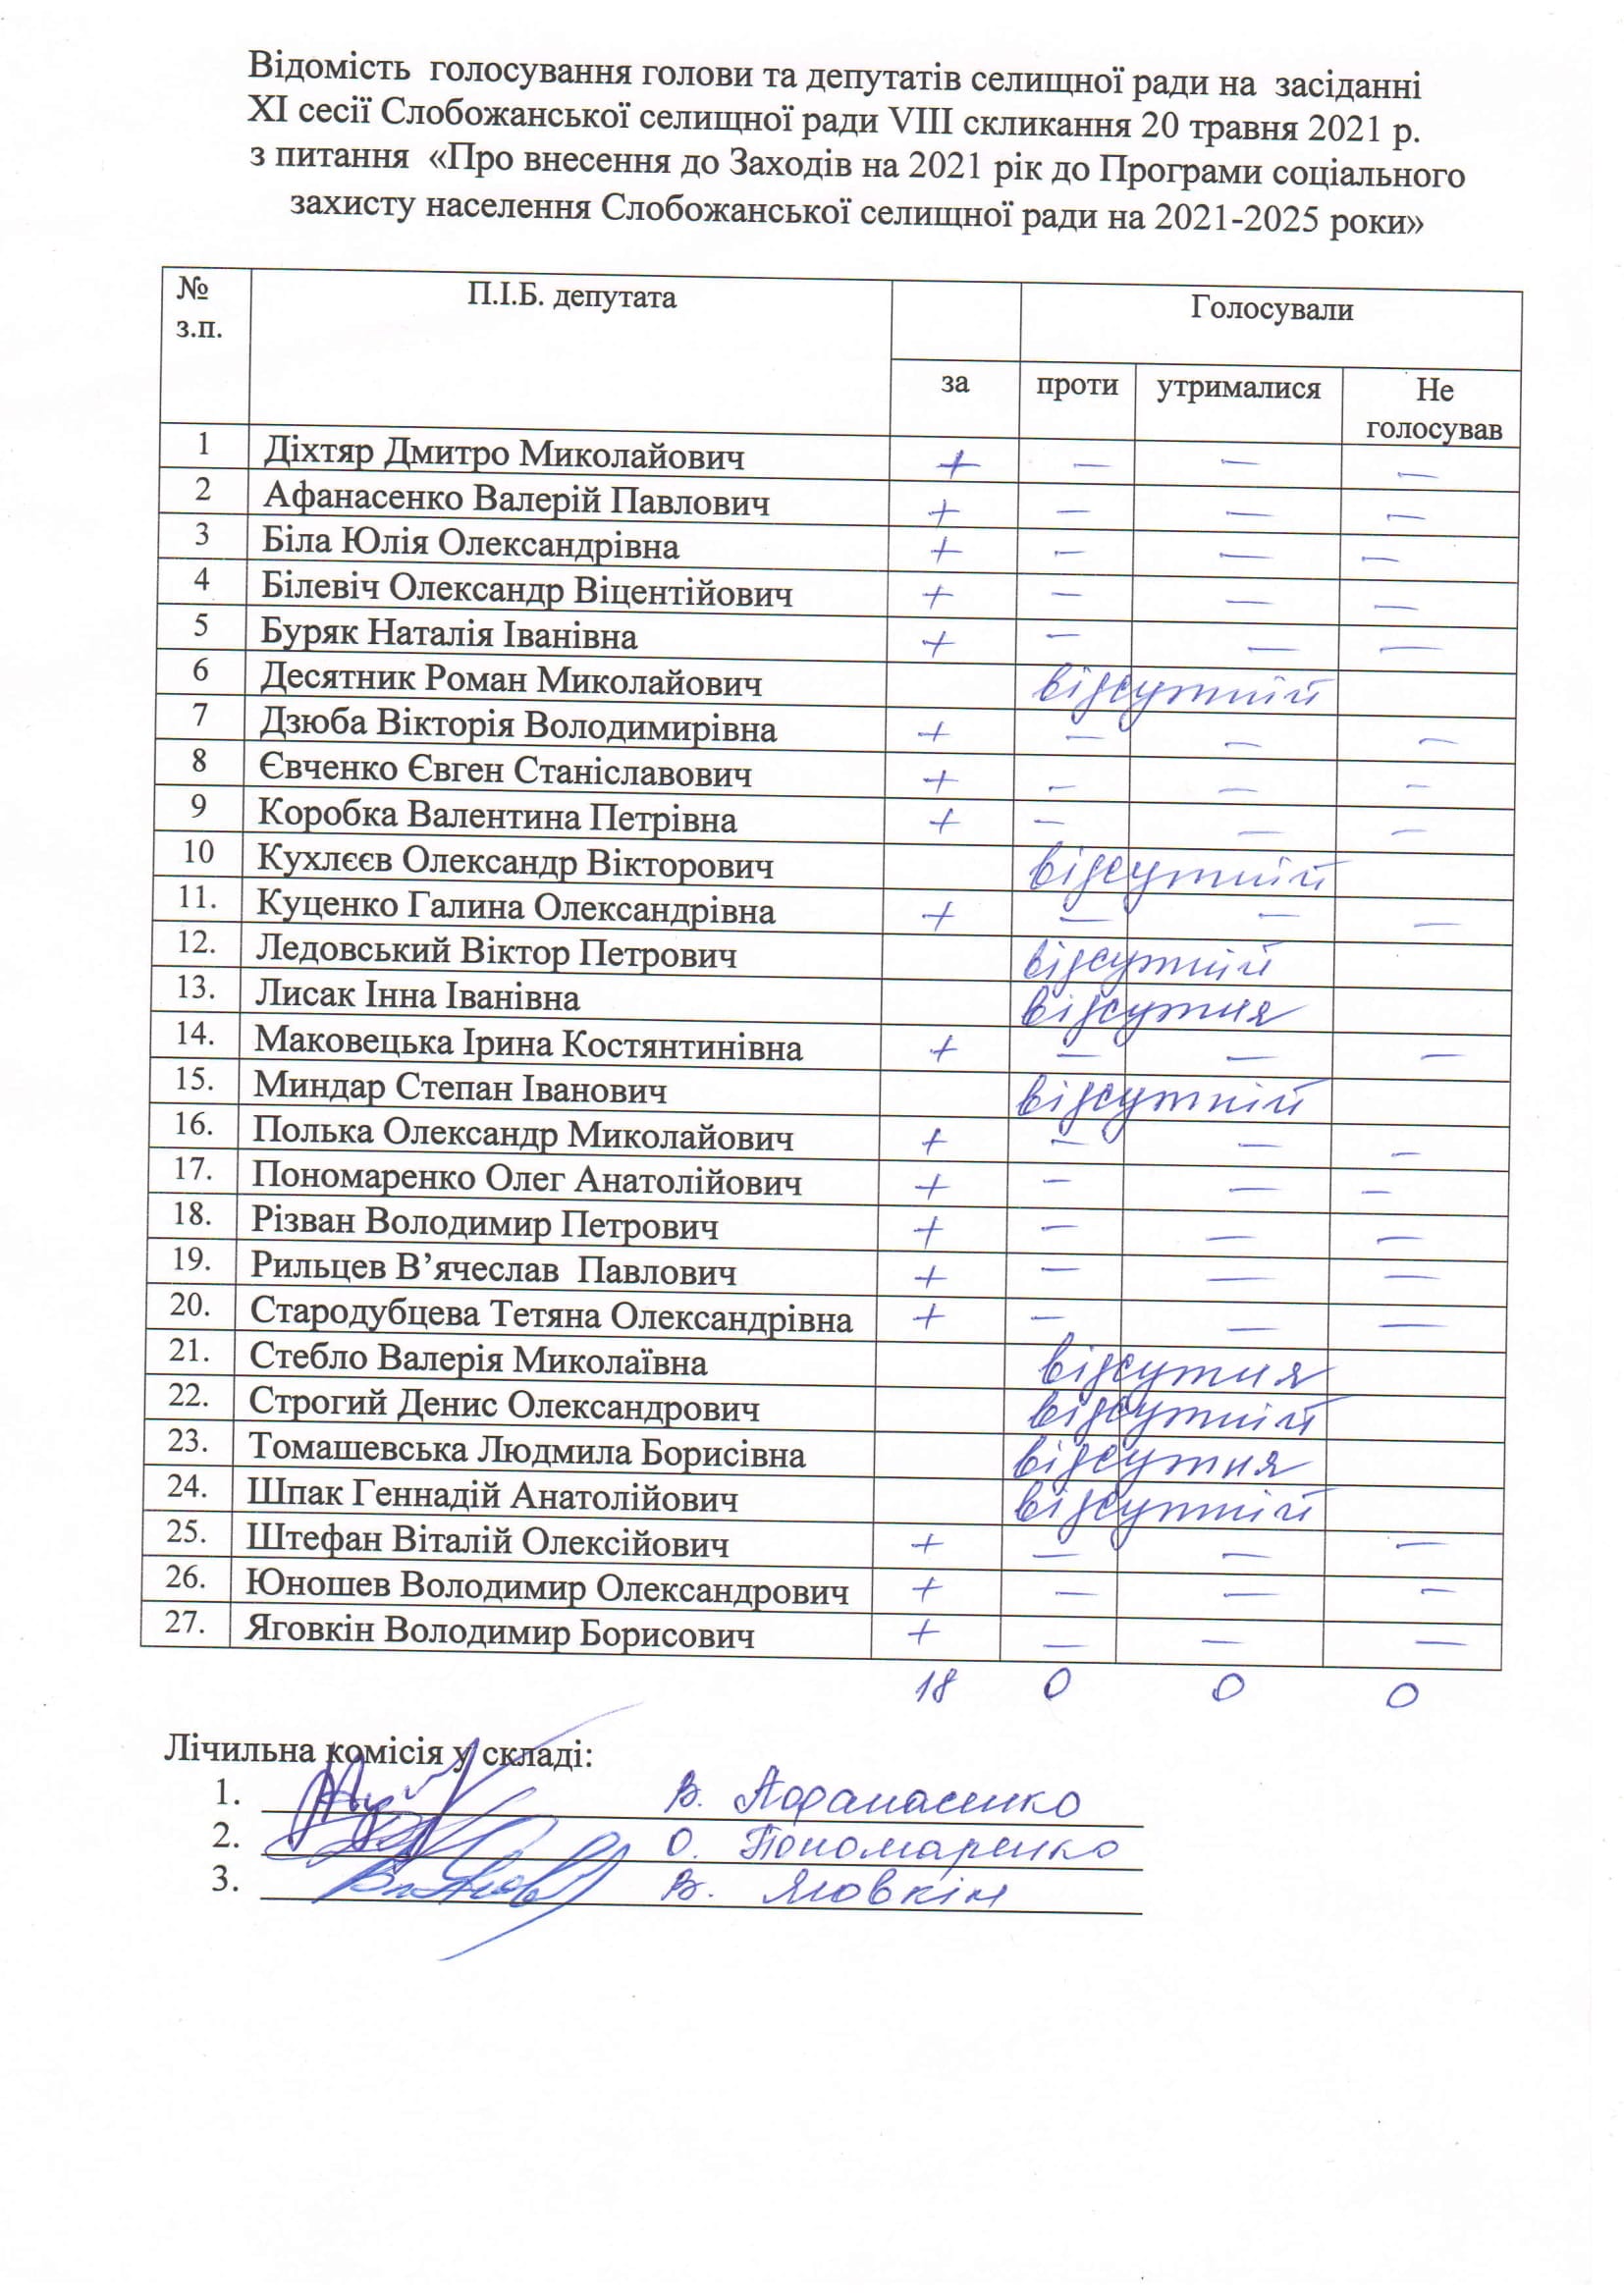 Відомість голосування голови та депутатів селищної ради на засіданні
XI сесії Слобожанської селищної ради VIII скликання 20 травня 2021 р.
з питання «Про внесення до Заходів на 2021 рік до Програми соціального
захисту населення Слобожанської селищної ради на 2021-2025 роки»
№ з.п. П.І.Б. депутата Голосували
за проти утрималися Не голосував
1 Діхтяр Дмитро Миколайович + – – –
2 Афанасенко Валерій Павлович + – – –
3 Біла Юлія Олександрівна + – – –
4 Білевіч Олександр Віцентійович + – – –
5 Буряк Наталія Іванівна + – – –
6 Десятник Роман Миколайович відсутній
7 Дзюба Вікторія Володимирівна + – – –
8 Євченко Євген Станіславович + – – –
9 Коробка Валентина Петрівна + – – –
10 Кухлєєв Олександр Вікторович відсутній
11. Куценко Галина Олександрівна + – – –
12. Ледовський Віктор Петрович відсутній
13. Лисак Інна Іванівна відсутня
14. Маковецька Ірина Костянтинівна + – – –
15. Миндар Степан Іванович відсутній
16. Полька Олександр Миколайович + – – –
17. Пономаренко Олег Анатолійович + – – –
18. Різван Володимир Петрович + – – –
19. Рильцев В’ячеслав Павлович + – – –
20. Стародубцева Тетяна Олександрівна + – – –
21. Стебло Валерія Миколаївна відсутня
22. Строгий Денис Олександрович відсутній
23. Томашевська Людмила Борисівна відсутня
24. Шпак Геннадій Анатолійович відсутній
25. Штефан Віталій Олексійович + – – –
26. Юношев Володимир Олександрович + – – –
27. Яговкін Володимир Борисович + – – –
18 0 0 0
Лічильна комісія у складі:
1. В. Афанасенко
2. О. Пономаренко
3. В. Яговкін